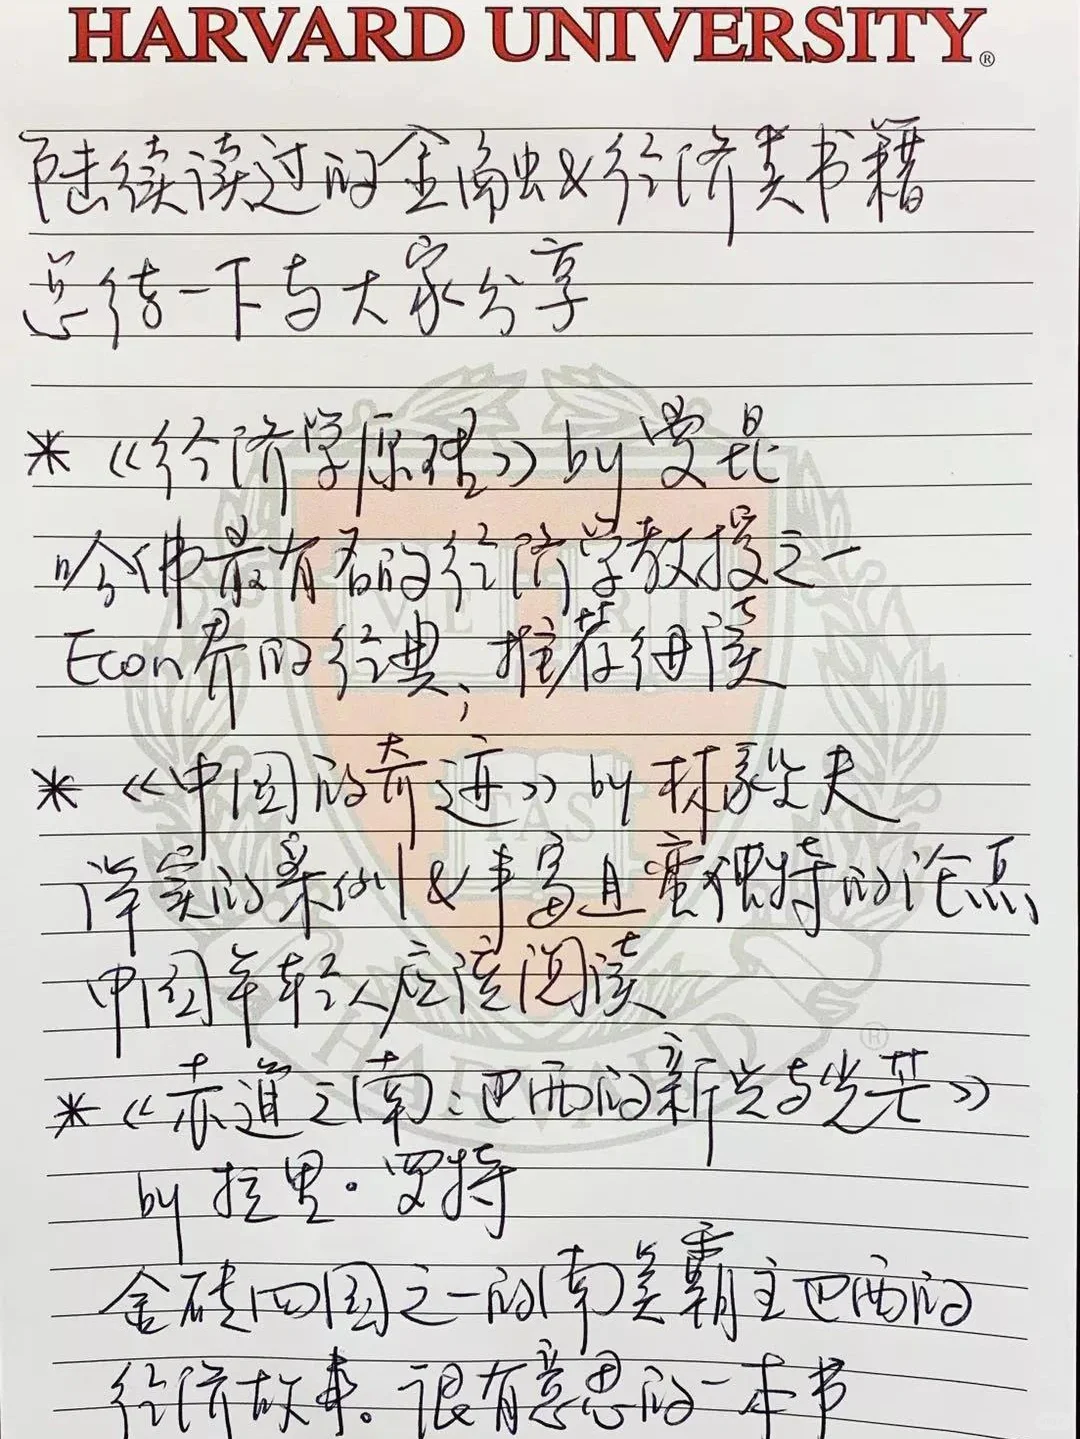 HARVARD UNIVERSITY®
陆续读过的金融&经济类书籍
总结一下与大家分享
* 《经济学原理》by 曼昆
哈佛最有名的经济学教授之一
Econ界的经典，推荐细读
* 《中国的奇迹》by 林毅夫
详实的案例&丰富且蛮独特的论点
中国年轻人应该阅读
* 《赤道之南：巴西的新兴与光芒》
by 拉里·罗特
金砖四国之一的南美霸主巴西的
经济故事。很有意思的一本书
VE RI
TAS
HARVARD